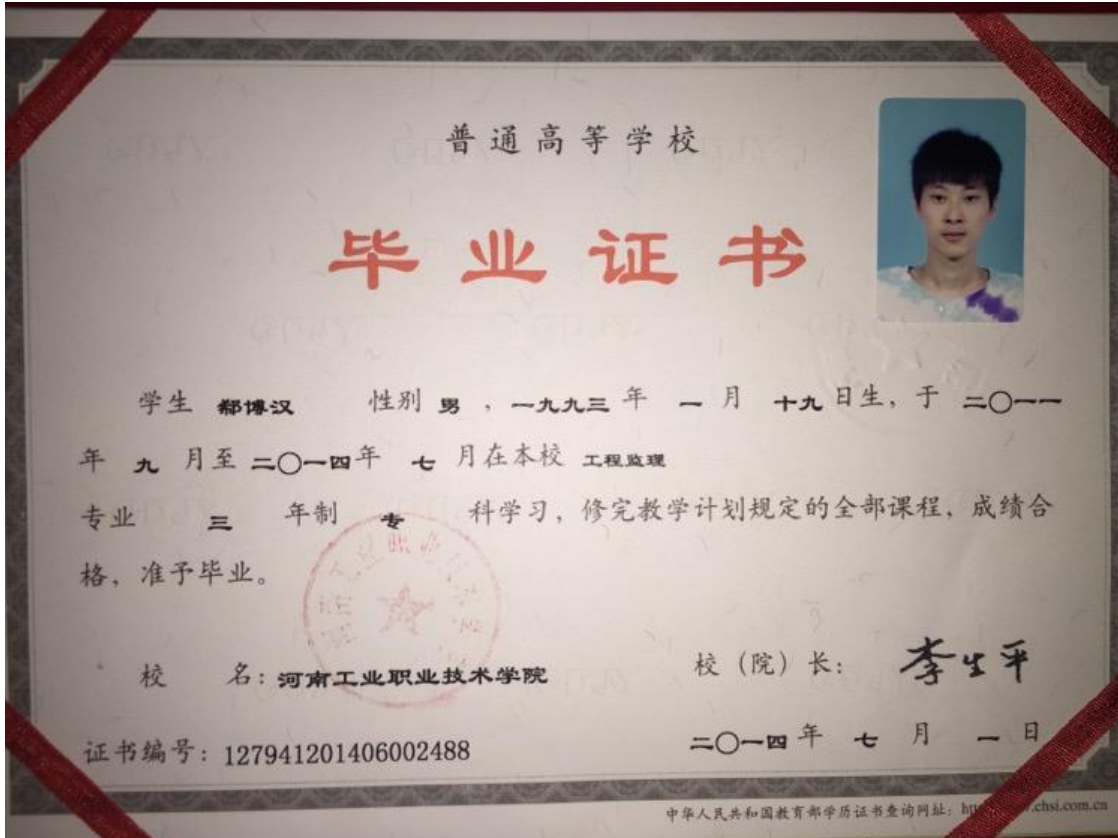 普通高等学校
毕业证书
学生 郗博汉 性别 男 ，一九九三 年 一 月 十九 日生，于 二〇一一
年 九 月至 二〇一四年 七 月在本校 工程监理
专业 三 年制 专 科学习，修完教学计划规定的全部课程，成绩合
格，准予毕业。
校 名：河南工业职业技术学院
校（院）长： 李生平
证书编号：127941201406002488
二〇一四 年 七 月 一 日
中华人民共和国教育部学历证书查询网址：
.chsi.com.cn